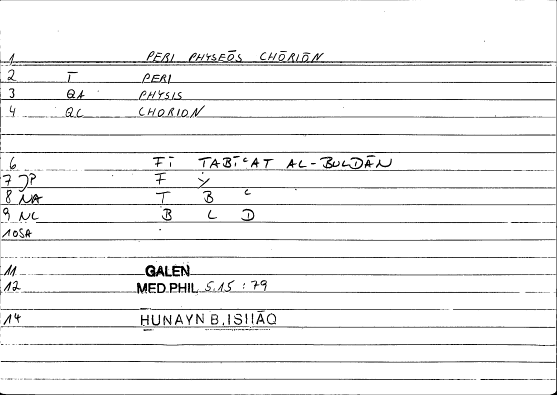 1 PERI PHYSEŌS CHŌRIŌN
2 T PERI
3 QA PHYSIS
4 QC CHORION
6 FĪ TABĪʿAT AL-BULDĀN
7 JP F Y
8 NA T B ʿ
9 NL B L D
10SA
11 GALEN
12 MED.PHIL 5.15 : 79
14 HUNAYN B.ISHĀQ